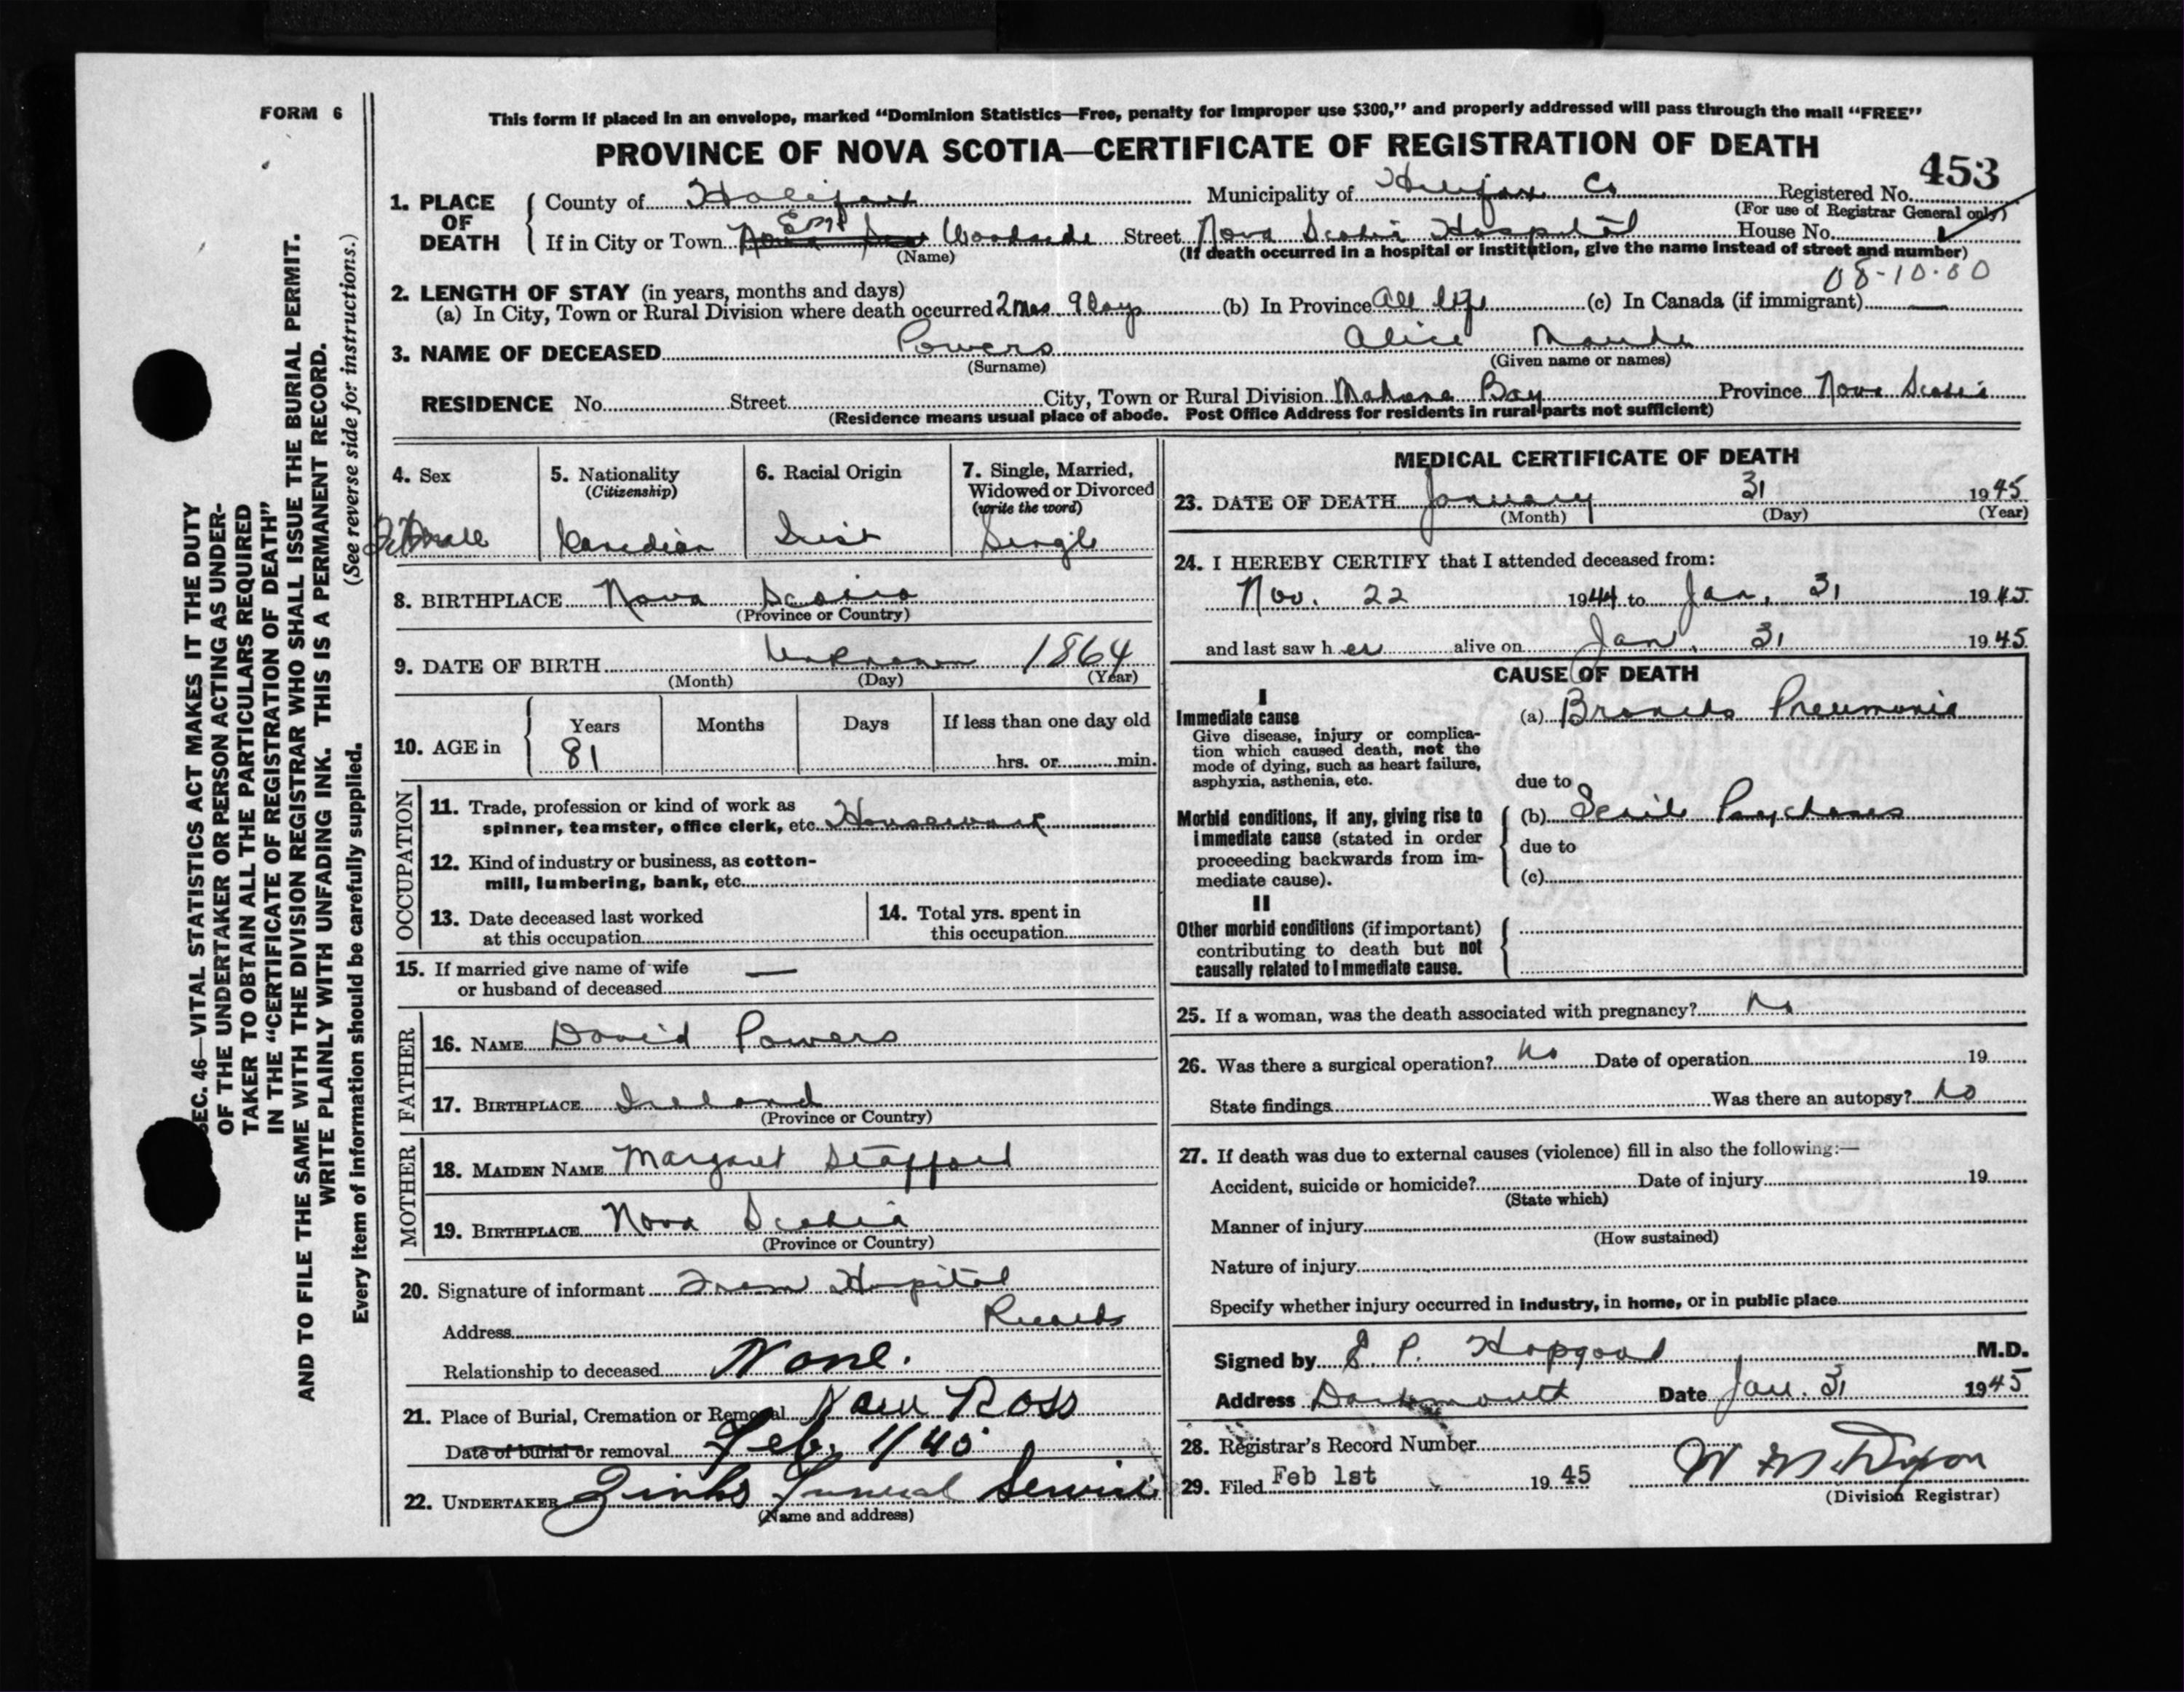 FORM 6
This form if placed in an envelope, marked "Dominion Statistics—Free, penalty for improper use $300," and properly addressed will pass through the mail "FREE"
PROVINCE OF NOVA SCOTIA—CERTIFICATE OF REGISTRATION OF DEATH
453
1. PLACE OF DEATH
County of Halifax Municipality of Halifax Co Registered No.
(For use of Registrar General only)
If in City or Town Woodside Street Nova Scotia Hospital House No.
(Name) (If death occurred in a hospital or institution, give the name instead of street and number)
08-10-00
2. LENGTH OF STAY (in years, months and days)
(a) In City, Town or Rural Division where death occurred 2 mos. 9 days (b) In Province All life (c) In Canada (if immigrant) —
3. NAME OF DECEASED Powers Alice Maude
(Surname) (Given name or names)
RESIDENCE No. Street City, Town or Rural Division Mahone Bay Province Nova Scotia
(Residence means usual place of abode. Post Office Address for residents in rural parts not sufficient)
4. Sex
Female
5. Nationality
(Citizenship)
Canadian
6. Racial Origin
Irish
7. Single, Married,
Widowed or Divorced
(write the word)
Single
8. BIRTHPLACE Nova Scotia
(Province or Country)
9. DATE OF BIRTH Unknown 1864
(Month) (Day) (Year)
10. AGE in
Years Months Days If less than one day old
81 hrs. or min.
OCCUPATION
11. Trade, profession or kind of work as
spinner, teamster, office clerk, etc. Housework
12. Kind of industry or business, as cotton-
mill, lumbering, bank, etc.
13. Date deceased last worked
at this occupation
14. Total yrs. spent in
this occupation
15. If married give name of wife —
or husband of deceased
FATHER
16. NAME David Powers
17. BIRTHPLACE Ireland
(Province or Country)
MOTHER
18. MAIDEN NAME Margaret Stafford
19. BIRTHPLACE Nova Scotia
(Province or Country)
20. Signature of informant From Hospital
Address Records
Relationship to deceased None.
21. Place of Burial, Cremation or Removal New Ross
Date of burial or removal Feb. 1/45
22. UNDERTAKER Zinks Funeral Service
(Name and address)
MEDICAL CERTIFICATE OF DEATH
23. DATE OF DEATH January 31 1945
(Month) (Day) (Year)
24. I HEREBY CERTIFY that I attended deceased from:
Nov. 22 1944 to Jan. 31 1945
and last saw her alive on Jan. 31 1945
CAUSE OF DEATH
I
Immediate cause (a) Broncho Pneumonia
Give disease, injury or complica-
tion which caused death, not the
mode of dying, such as heart failure,
asphyxia, asthenia, etc. due to
Morbid conditions, if any, giving rise to (b) Senile Psychoses
immediate cause (stated in order due to
proceeding backwards from im-
mediate cause). (c)
II
Other morbid conditions (if important)
contributing to death but not
causally related to immediate cause.
25. If a woman, was the death associated with pregnancy? No
26. Was there a surgical operation? No Date of operation 19
State findings Was there an autopsy? No
27. If death was due to external causes (violence) fill in also the following:—
Accident, suicide or homicide? Date of injury 19
(State which)
Manner of injury
(How sustained)
Nature of injury
Specify whether injury occurred in industry, in home, or in public place
Signed by E. P. Hopgood M.D.
Address Dartmouth Date Jan. 31 1945
28. Registrar's Record Number
29. Filed Feb 1st 1945
(Division Registrar)
SEC. 46—VITAL STATISTICS ACT MAKES IT THE DUTY
OF THE UNDERTAKER OR PERSON ACTING AS UNDER-
TAKER TO OBTAIN ALL THE PARTICULARS REQUIRED
IN THE "CERTIFICATE OF REGISTRATION OF DEATH"
AND TO FILE THE SAME WITH THE DIVISION REGISTRAR WHO SHALL ISSUE THE BURIAL PERMIT.
WRITE PLAINLY WITH UNFADING INK. THIS IS A PERMANENT RECORD.
Every item of information should be carefully supplied. (See reverse side for instructions.)